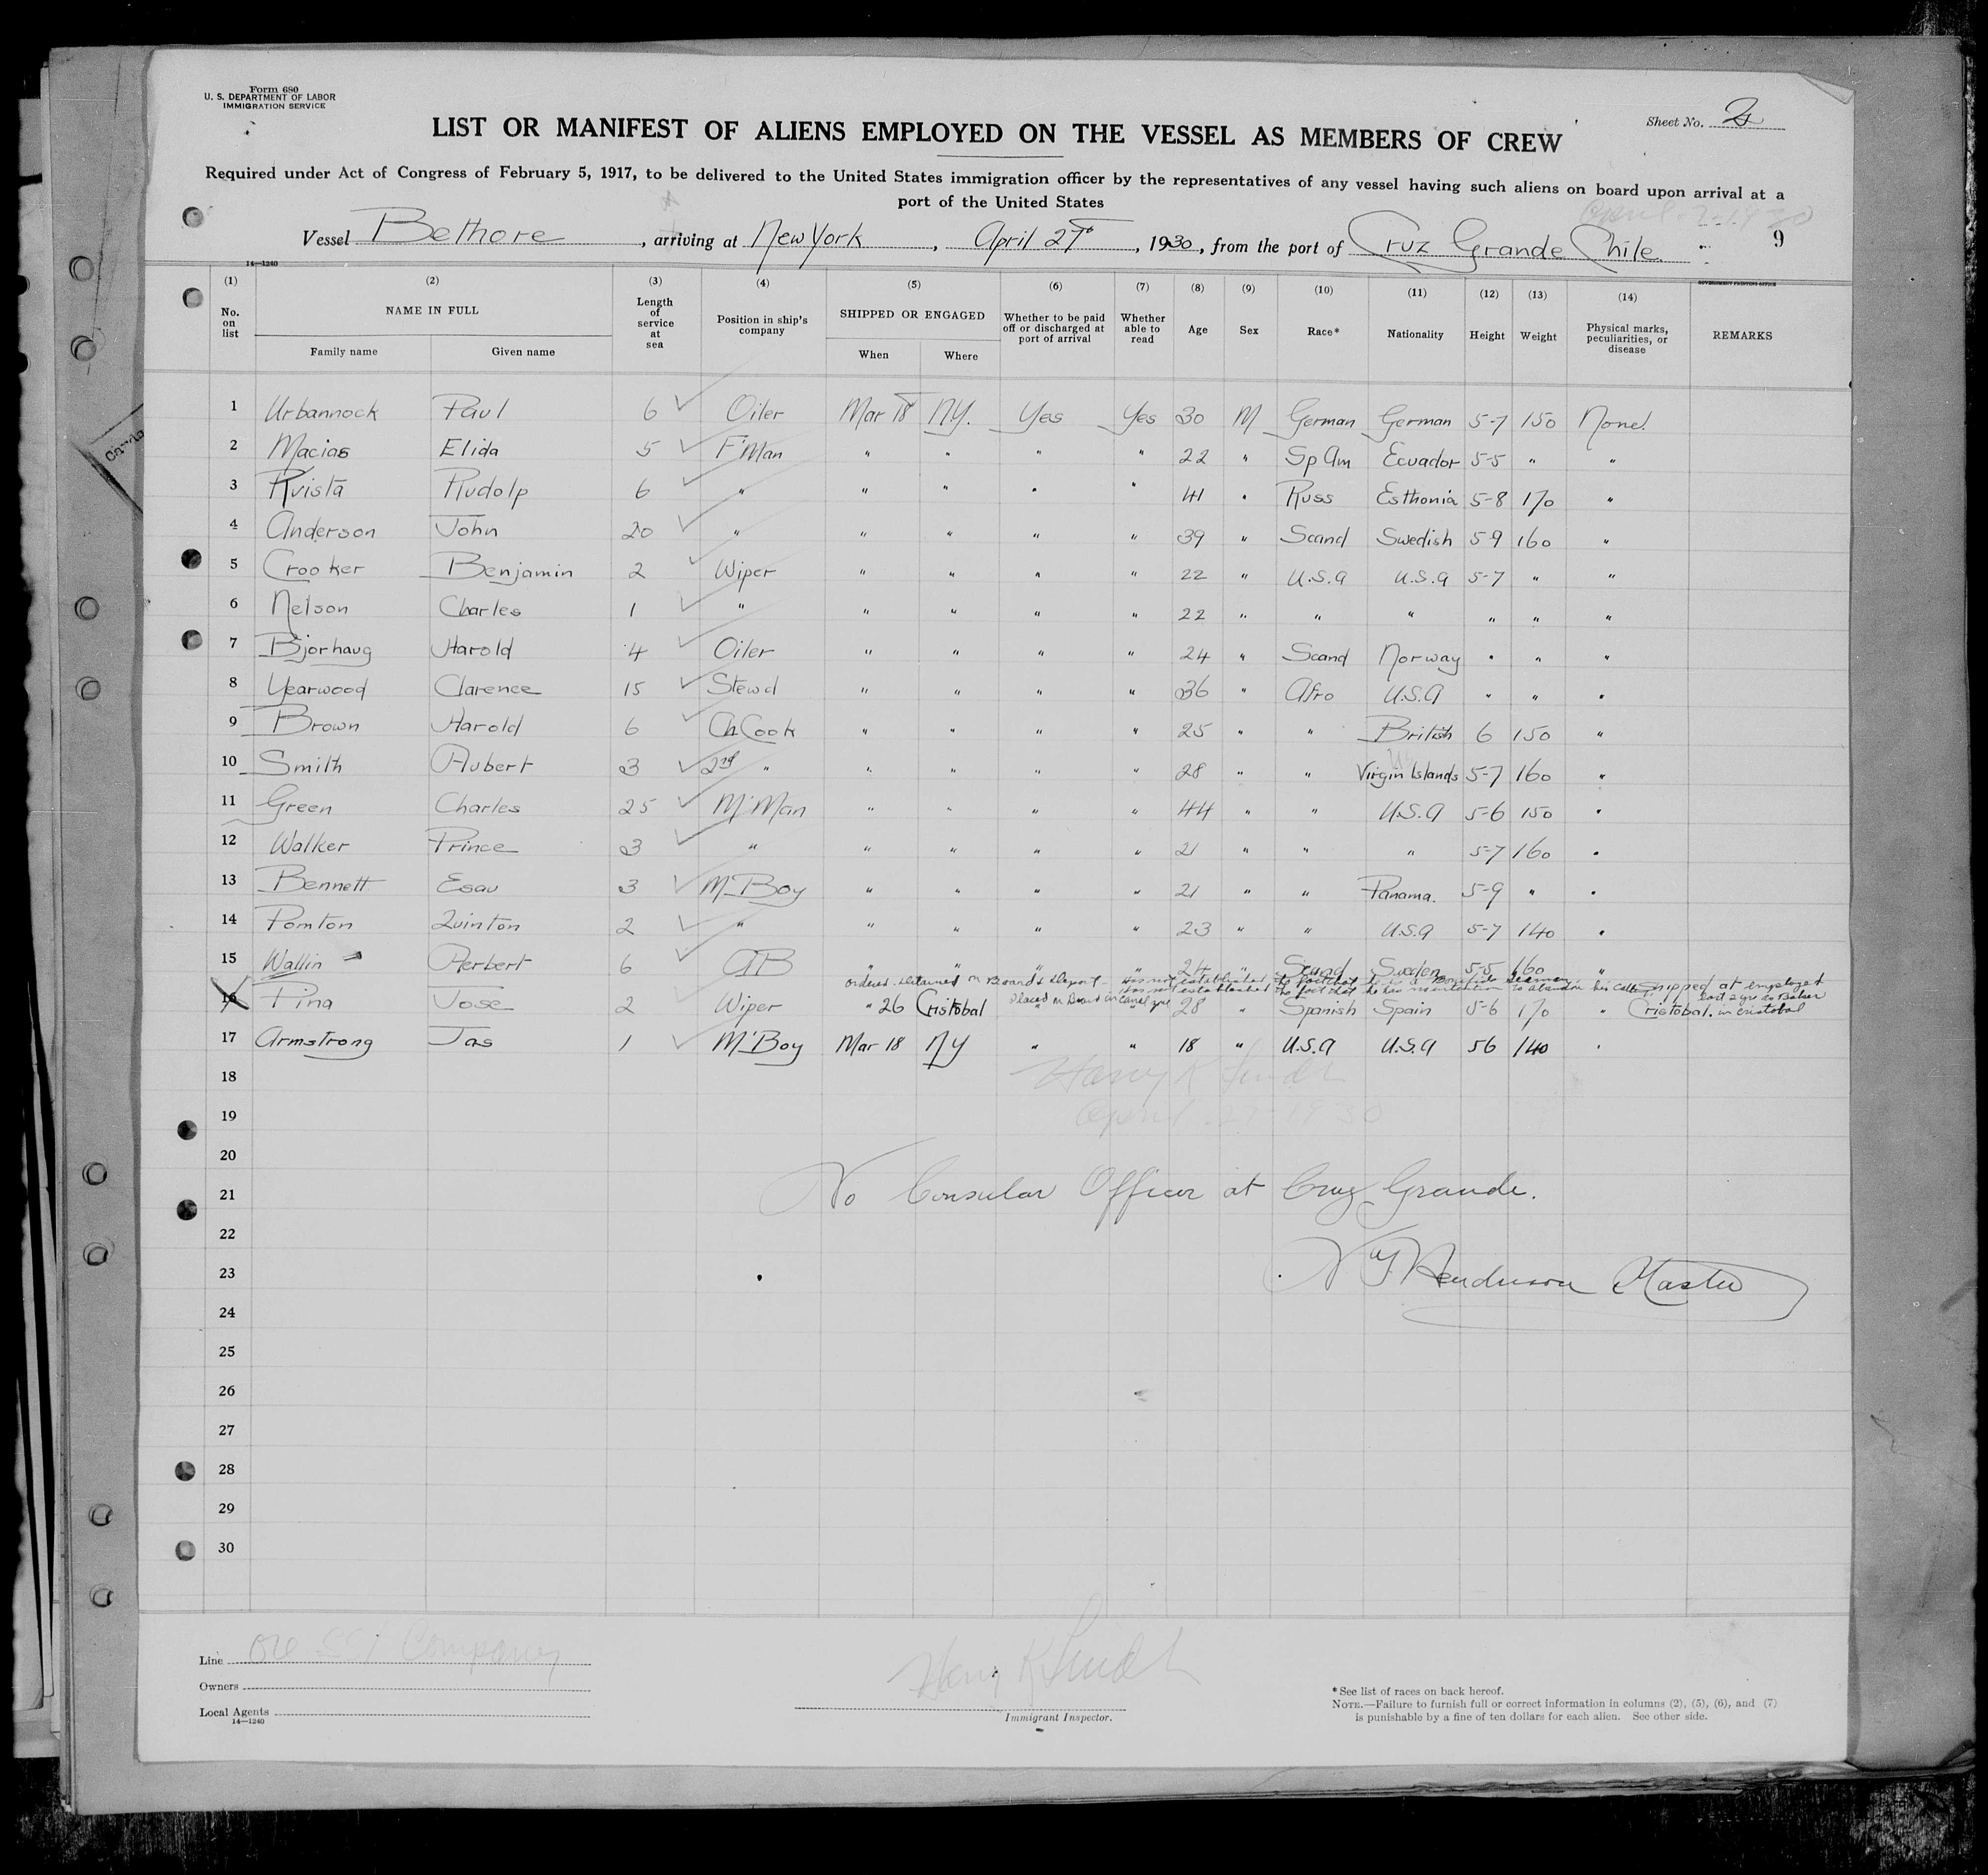 Form 680
U. S. DEPARTMENT OF LABOR
IMMIGRATION SERVICE
Sheet No. 2
LIST OR MANIFEST OF ALIENS EMPLOYED ON THE VESSEL AS MEMBERS OF CREW
Required under Act of Congress of February 5, 1917, to be delivered to the United States immigration officer by the representatives of any vessel having such aliens on board upon arrival at a
port of the United States
Vessel Bethore, arriving at New York, April 27th, 1930, from the port of Cruz Grande Chile. 9
14—1240
GOVERNMENT PRINTING OFFICE
(1) (2) (3) (4) (5) (6) (7) (8) (9) (10) (11) (12) (13) (14)
No. on list NAME IN FULL Family name Given name Length of service at sea Position in ship's company SHIPPED OR ENGAGED When Where Whether to be paid off or discharged at port of arrival Whether able to read Age Sex Race* Nationality Height Weight Physical marks, peculiarities, or disease REMARKS
1 Urbannock Paul 6 Oiler Mar 18 N.Y. Yes Yes 30 M German German 5-7 150 None.
2 Macias Elida 5 F'Man " " " " 22 " Sp Am Ecuador 5-5 " "
3 Kvista Rudolp 6 " " " " " 41 " Russ Esthonia 5-8 170 "
4 Anderson John 20 " " " " " 39 " Scand Swedish 5-9 160 "
5 Crooker Benjamin 2 Wiper " " " " 22 " U.S.A U.S.A 5-7 " "
6 Nelson Charles 1 " " " " " 22 " " " " " "
7 Bjorhaug Harold 4 Oiler " " " " 24 " Scand Norway " " "
8 Yearwood Clarence 15 Stewd " " " " 36 " Afro U.S.A " " "
9 Brown Harold 6 Ch Cook " " " " 25 " " British 6 150 "
10 Smith Hubert 3 2nd " " " " " 28 " " Virgin Islands 5-7 160 "
11 Green Charles 25 M'Man " " " " 44 " " U.S.A 5-6 150 "
12 Walker Prince 3 " " " " " 21 " " " 5-7 160 "
13 Bennett Esau 3 M'Boy " " " " 21 " " Panama. 5-9 " "
14 Pomton Quinton 2 " " " " " 23 " " U.S.A 5-7 140 "
15 Wallin Herbert 6 AB " " " " 24 " Scand Sweden 5-5 160 "
ordered detained on Board & Deport - Has not established the fact that he is a Bonafide Seaman
Has not established the fact that he has no intention to abandon his calling
Placed on Board in Canal Zone
16 Pina Jose 2 Wiper " 26 Cristobal " " 28 " Spanish Spain 5-6 170 " Shipped at Cristobal.
employed last 2 yrs as Baker in Cristobal
17 Armstrong Jas 1 M'Boy Mar 18 NY " " 18 " U.S.A U.S.A 56 140 "
18
April 27-1930
19
20
21 No Consular Officer at Cruz Grande.
22
23 Henderson Master
24
25
26
27
28
29
30
Line Ore SS Company
Owners
Local Agents
14—1240
Immigrant Inspector.
*See list of races on back hereof.
NOTE.—Failure to furnish full or correct information in columns (2), (5), (6), and (7)
is punishable by a fine of ten dollars for each alien. See other side.